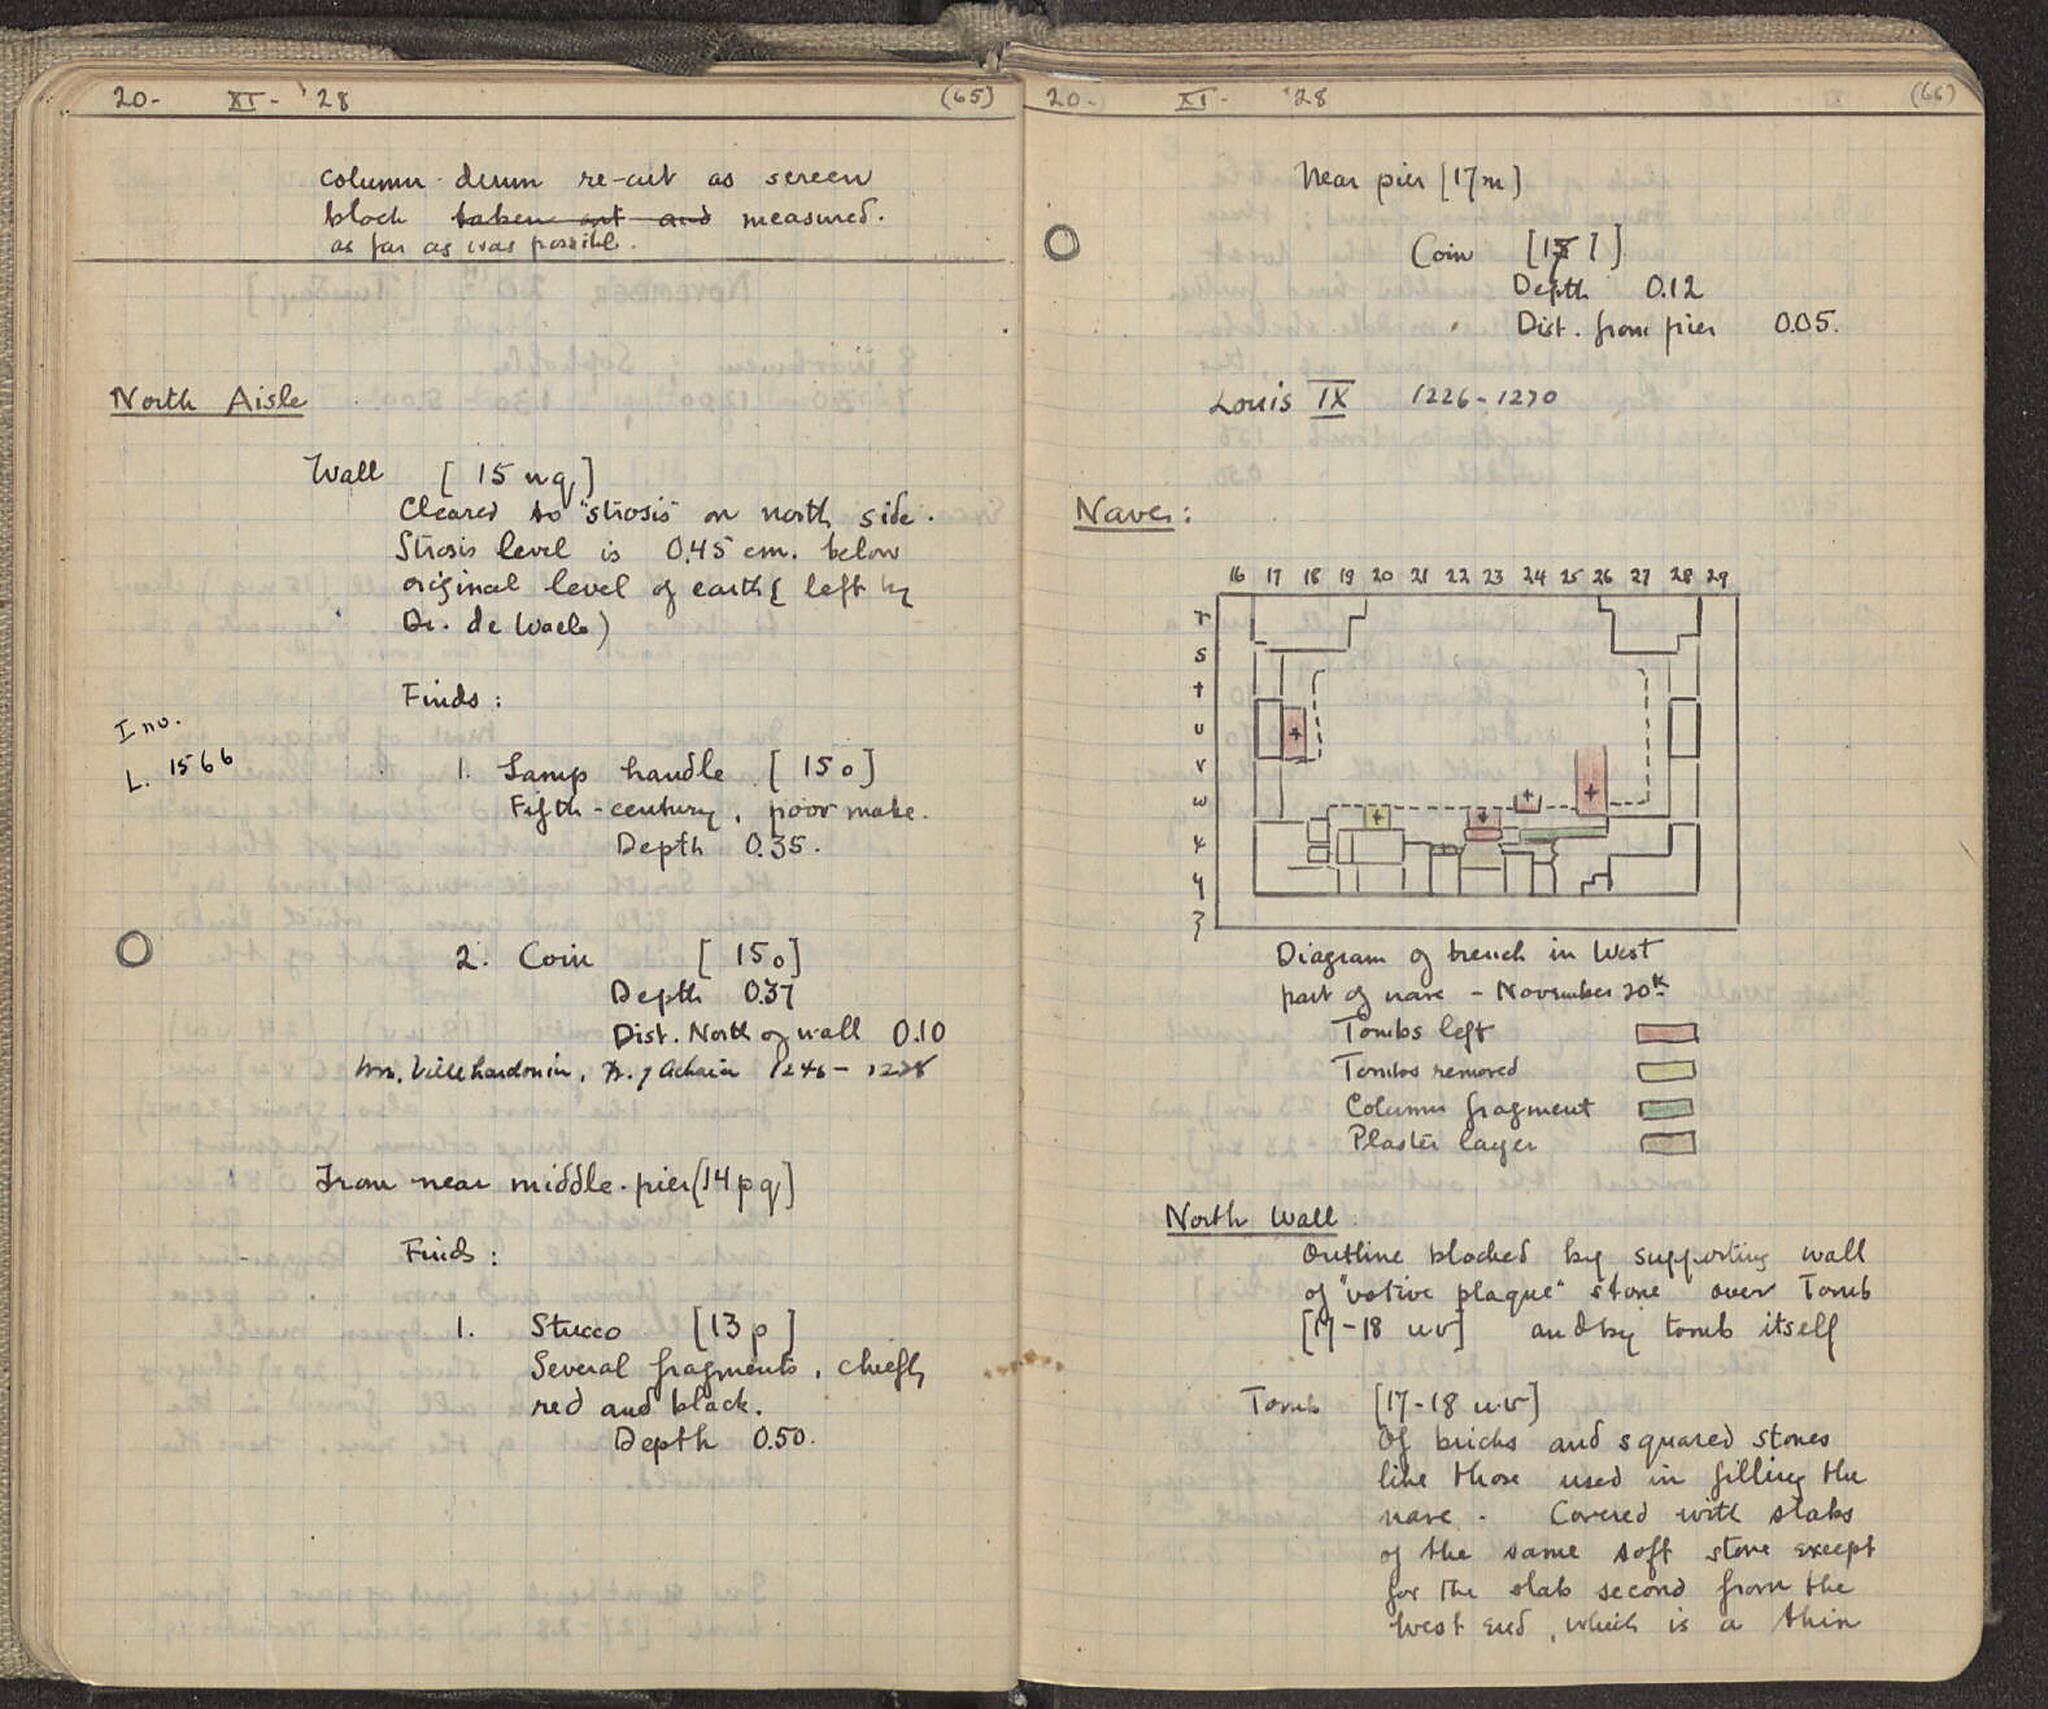 20- XI- '28 (65)
column drum re-cut as screen
block taken out and measured.
as far as was possible.
North Aisle
Wall [15 n q]
Cleared to "strosis" on north side.
Strosis level is 0.45 cm. below
original level of earth ( left by
Dr. de Waele)
Finds :
Inv.
L. 1566
1. Lamp handle [15 o]
Fifth-century, poor make.
Depth 0.35.
2. Coin [15 o]
Depth 0.37
Dist. North of wall 0.10
Wm. Villehardouin, Pr. of Achaia 1246-1278
From near middle pier [14 p q]
Finds :
1. Stucco [13 p]
Several fragments, chiefly
red and black.
Depth 0.50.
20- XI- '28 (66)
Near pier [17 m]
Coin [17 l]
Depth 0.12
Dist. from pier 0.05.
Louis IX 1226-1270
Nave:
16 17 18 19 20 21 22 23 24 25 26 27 28 29
r
s
t
u
v
w
x
y
z
Diagram of trench in West
part of nave - November 20th
Tombs left
Tombs removed
Column fragment
Plaster layer
North Wall
Outline blocked by supporting wall
of "votive plaque" stone over Tomb
[17-18 u v] and by tomb itself
Tomb [17-18 u.v]
Of bricks and squared stones
like those used in filling the
nave. Covered with slabs
of the same soft stone except
for the slab second from the
West end, which is a thin